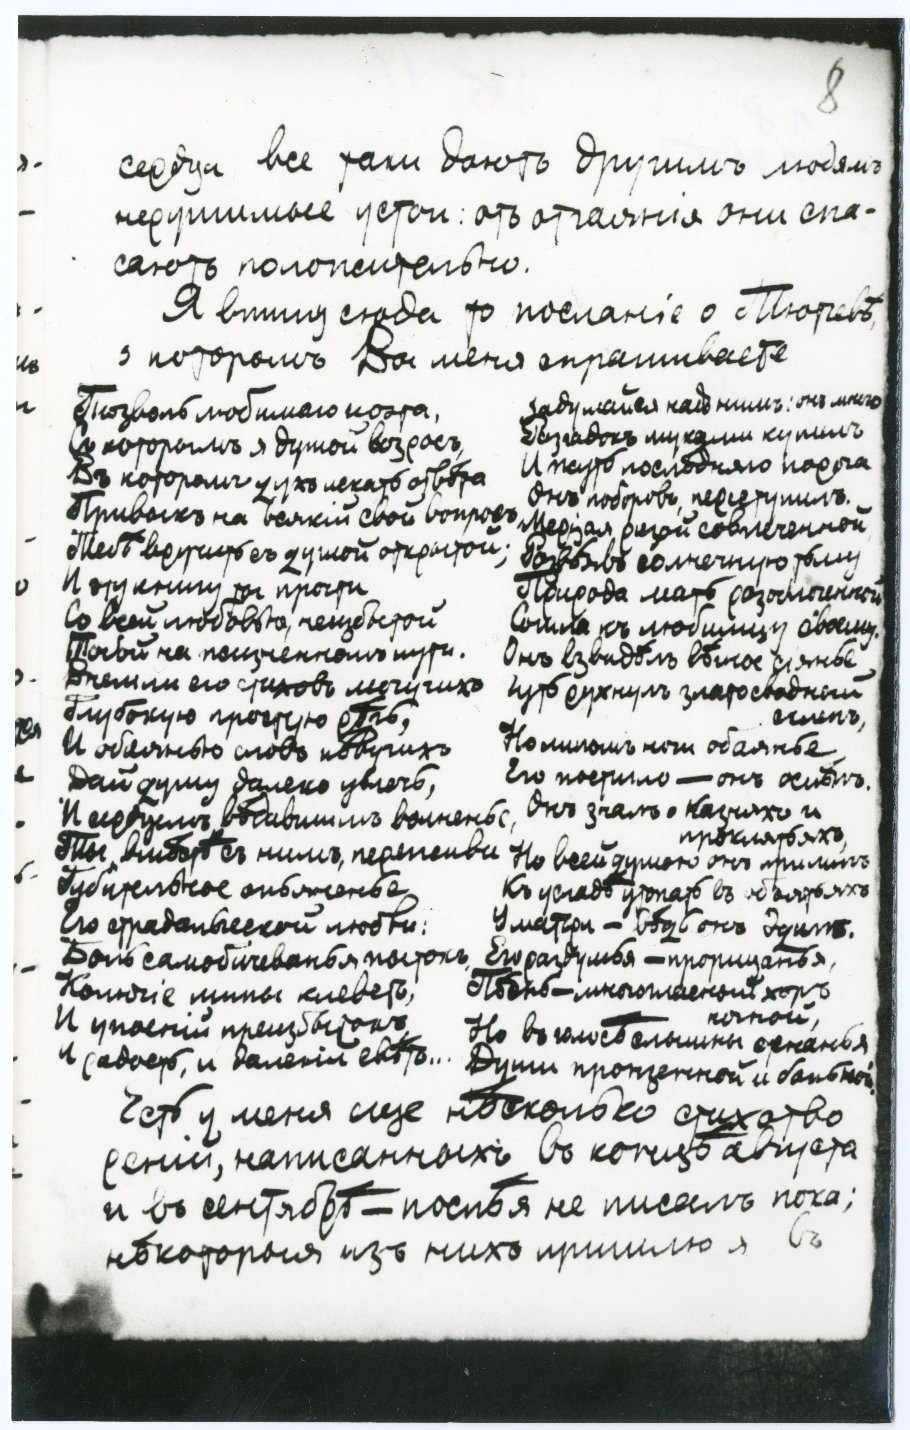 8
сердца все таки даютъ другимъ людямъ
нерушимые устои: отъ отчаянія они спа-
саютъ положительно.
Я впишу сюда то посланіе о Тютчевѣ,
о которомъ Вы меня спрашиваете
Позволь любимаго поэта,
Съ которымъ я душой возросъ,
Въ которомъ духъ искать отвѣта
Привыкъ на всякій свой вопросъ,
Тебѣ вручить съ душой открытой;
И эту книгу ты прочти
Со всей любовью, неизбытой
Тобой на жизненномъ пути.
Внемли его стиховъ могучихъ
Глубокую простую рѣчь,
И обаянью словъ пѣвучихъ
Дай душу далеко увлечь,
И сердцемъ, вѣдавшимъ волненье,
Ты, вмѣстѣ съ нимъ, переживи
Губительное опьяненье
Его страдальческой любви:
Боль самобичеванья пытокъ,
Колючіе шипы клеветъ,
И упоеній преизбытокъ,
И радость, и далекій свѣтъ...
Задумайся надъ нимъ: онъ много
Разгадокъ муками купилъ
И жуть послѣдняго порога
Онъ поборовъ, переступилъ.
Мерцая ризой совлеченной,
Развѣявъ солнечную тьму
Природа мать разоблаченной
Сошла къ любимцу своему.
Онъ взвидѣлъ вѣчное сіянье
Чуть рухнулъ златозводный
склепъ,
Но милымъ ночи обаянье
Его покрыло — онъ ослѣпъ.
Онъ зналъ о казняхъ и
проклятьяхъ,
Но всей душою онъ
Къ усладѣ утопать въ объятьяхъ
У матери — вѣдь онъ
Его раздумья — прорицанья,
Пѣснь — многогласный хоръ
ночной,
Но въ голосѣ слышны стенанья
Души пронзенной и больной.
Есть у меня еще нѣсколько стихотво
реній, написанныхъ въ концѣ августа
и въ сентябрѣ — послѣ я не писалъ пока;
нѣкоторыя изъ нихъ пришлю я въ